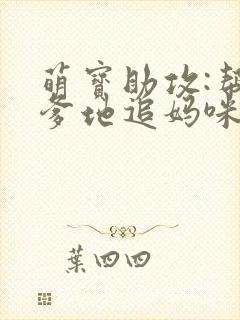 萌寶助攻:幫
爹地追媽咪
葉四四